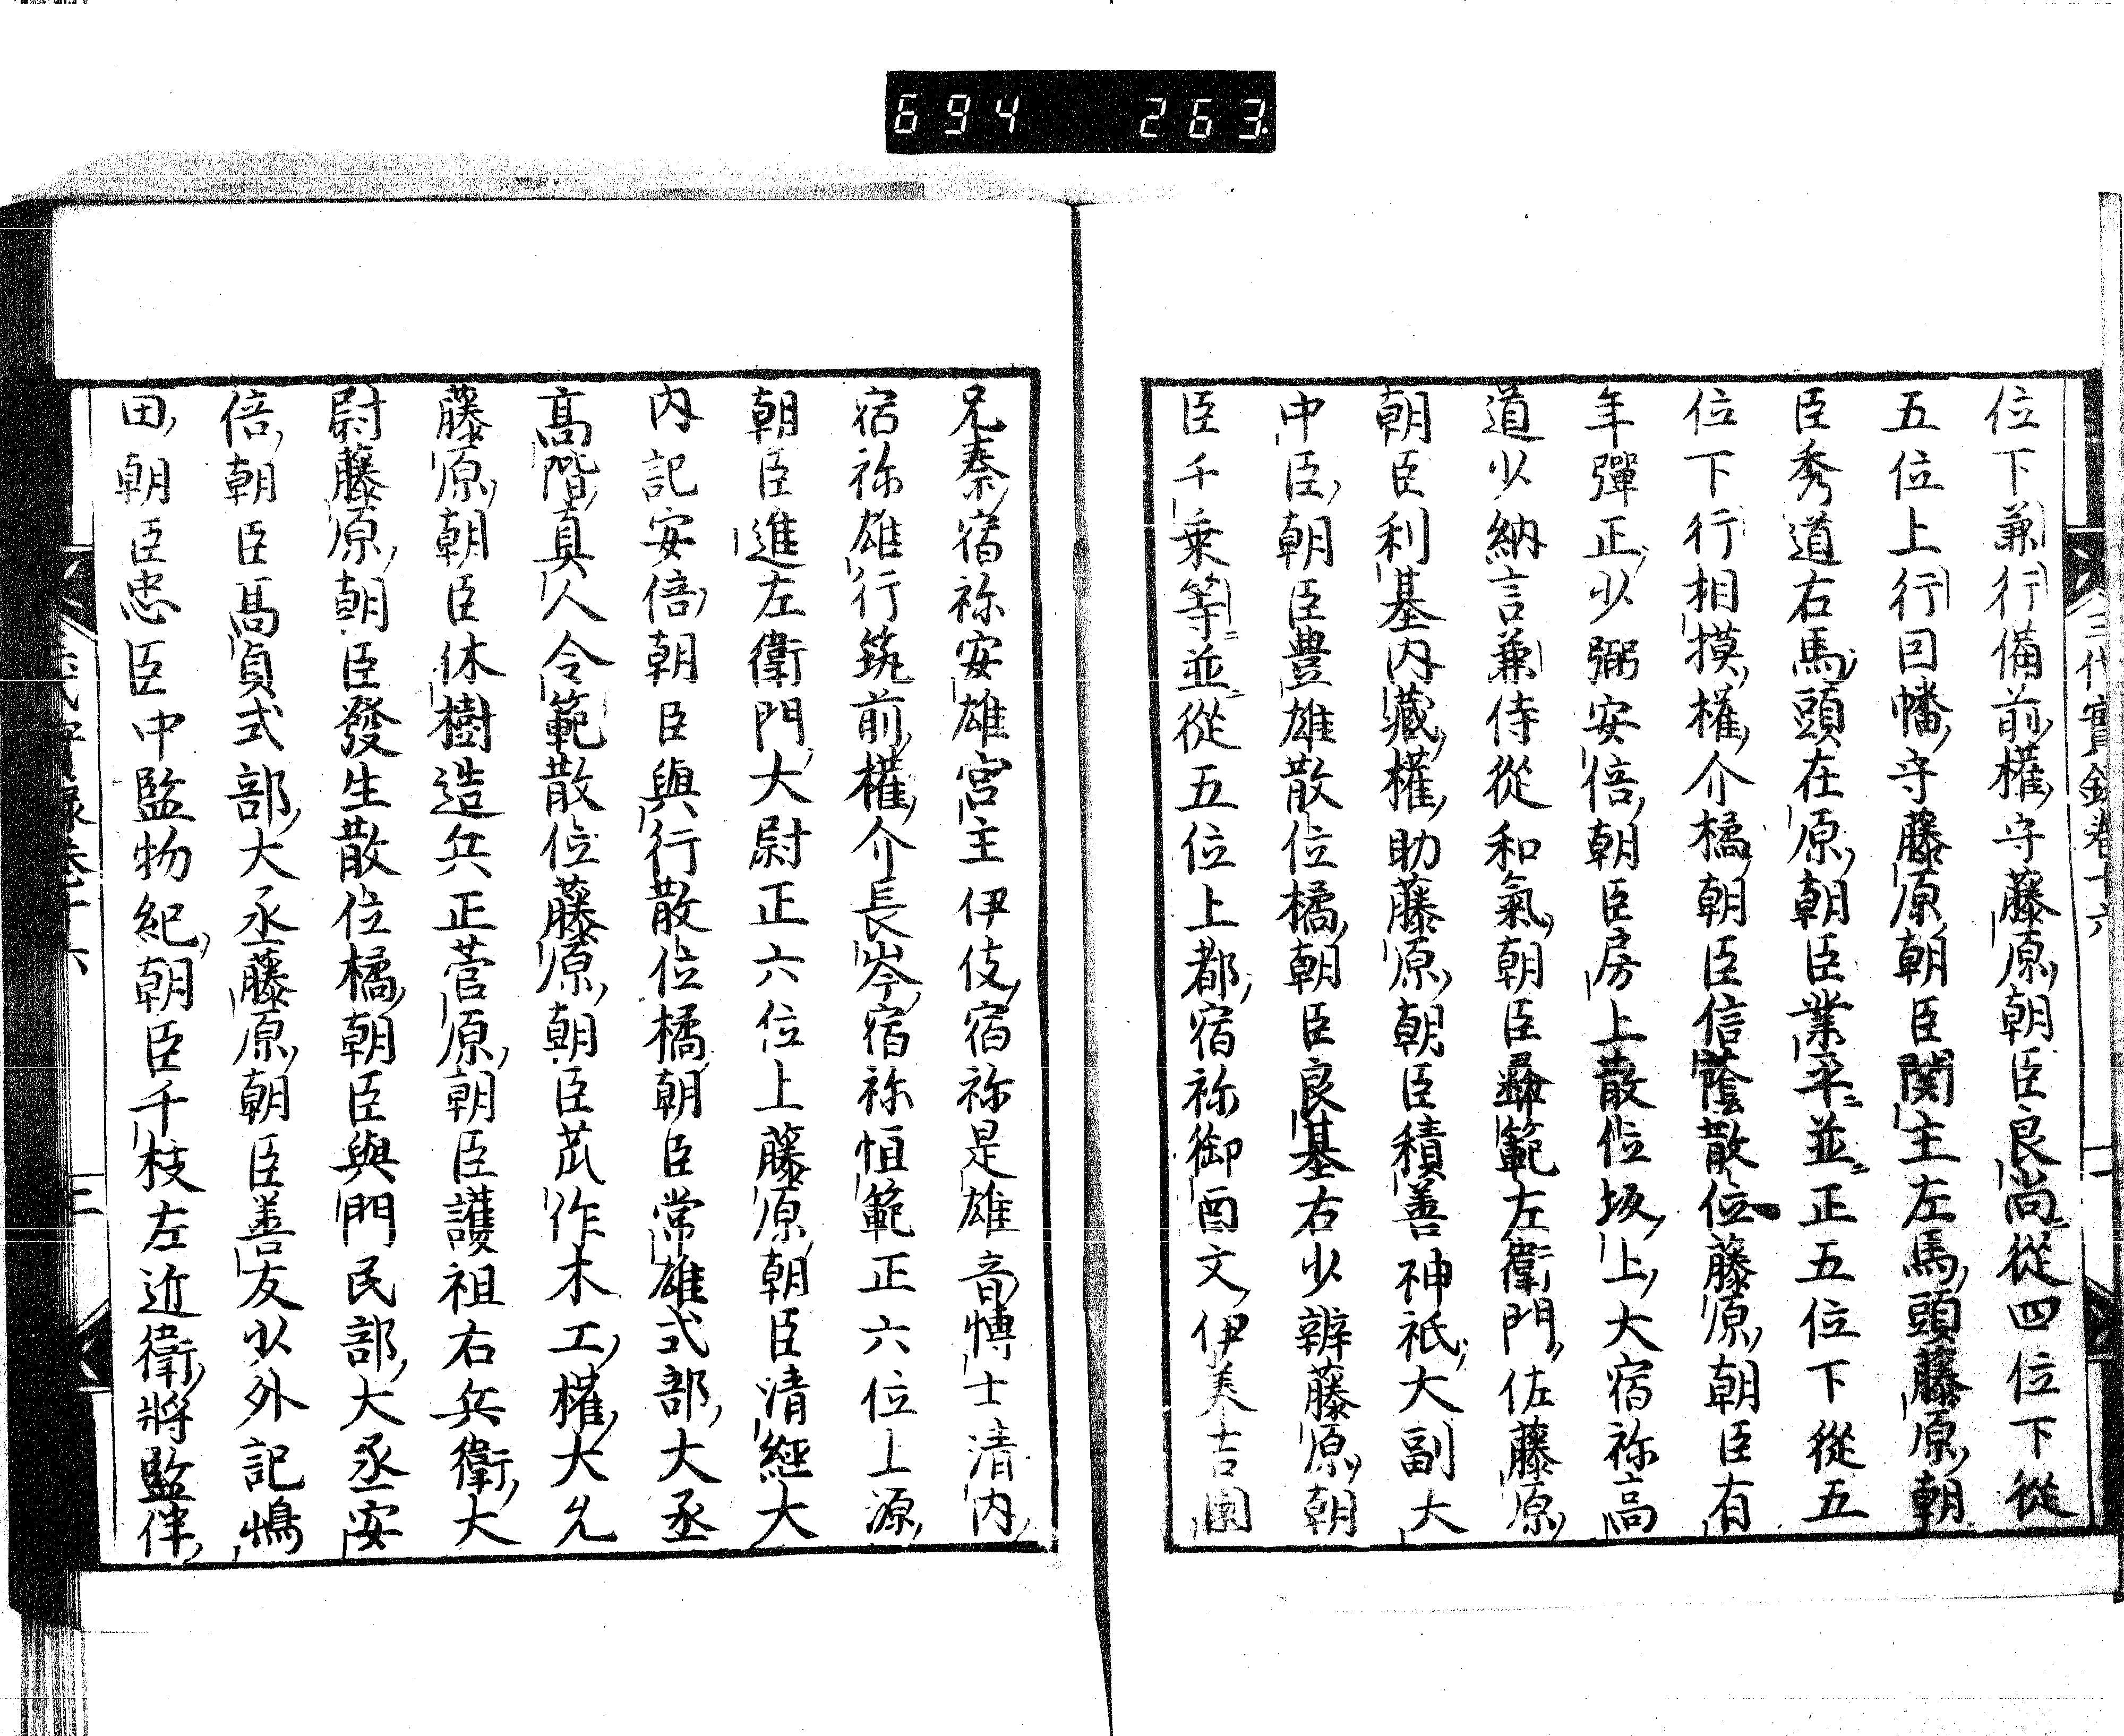 694 263
三代實錄卷十六
位下兼行備前權守藤原朝臣良尚從四位下從
五位上行因幡守藤原朝臣関主左馬頭藤原朝
臣秀道右馬頭在原朝臣業平並正五位下從五
位下行相摸權介橘朝臣信蔭散位藤原朝臣有
年彈正少弼安倍朝臣房上散位坂上大宿祢高
道少納言兼侍從和氣朝臣彝範左衛門佐藤原
朝臣利基内藏權助藤原朝臣積善神祇大副大
中臣朝臣豊雄散位橘朝臣良基右少辨藤原朝
臣千乗等並從五位上都宿祢御酉文伊美吉園
兄秦宿祢安雄宮主伊伎宿祢是雄音愽士清内
宿祢雄行筑前權介長岑宿祢恒範正六位上源
朝臣進左衛門大尉正六位上藤原朝臣清經大
内記安倍朝臣與行散位橘朝臣常雄式部大丞
髙階真人令範散位藤原朝臣苽作木工權大允
藤原朝臣休樹造兵正菅原朝臣護祖右兵衛大
尉藤原朝臣發生散位橘朝臣與門民部大丞安
倍朝臣髙貞式部大丞藤原朝臣善友少外記鴨
田朝臣忠臣中監物紀朝臣千枝左近衛將監伴